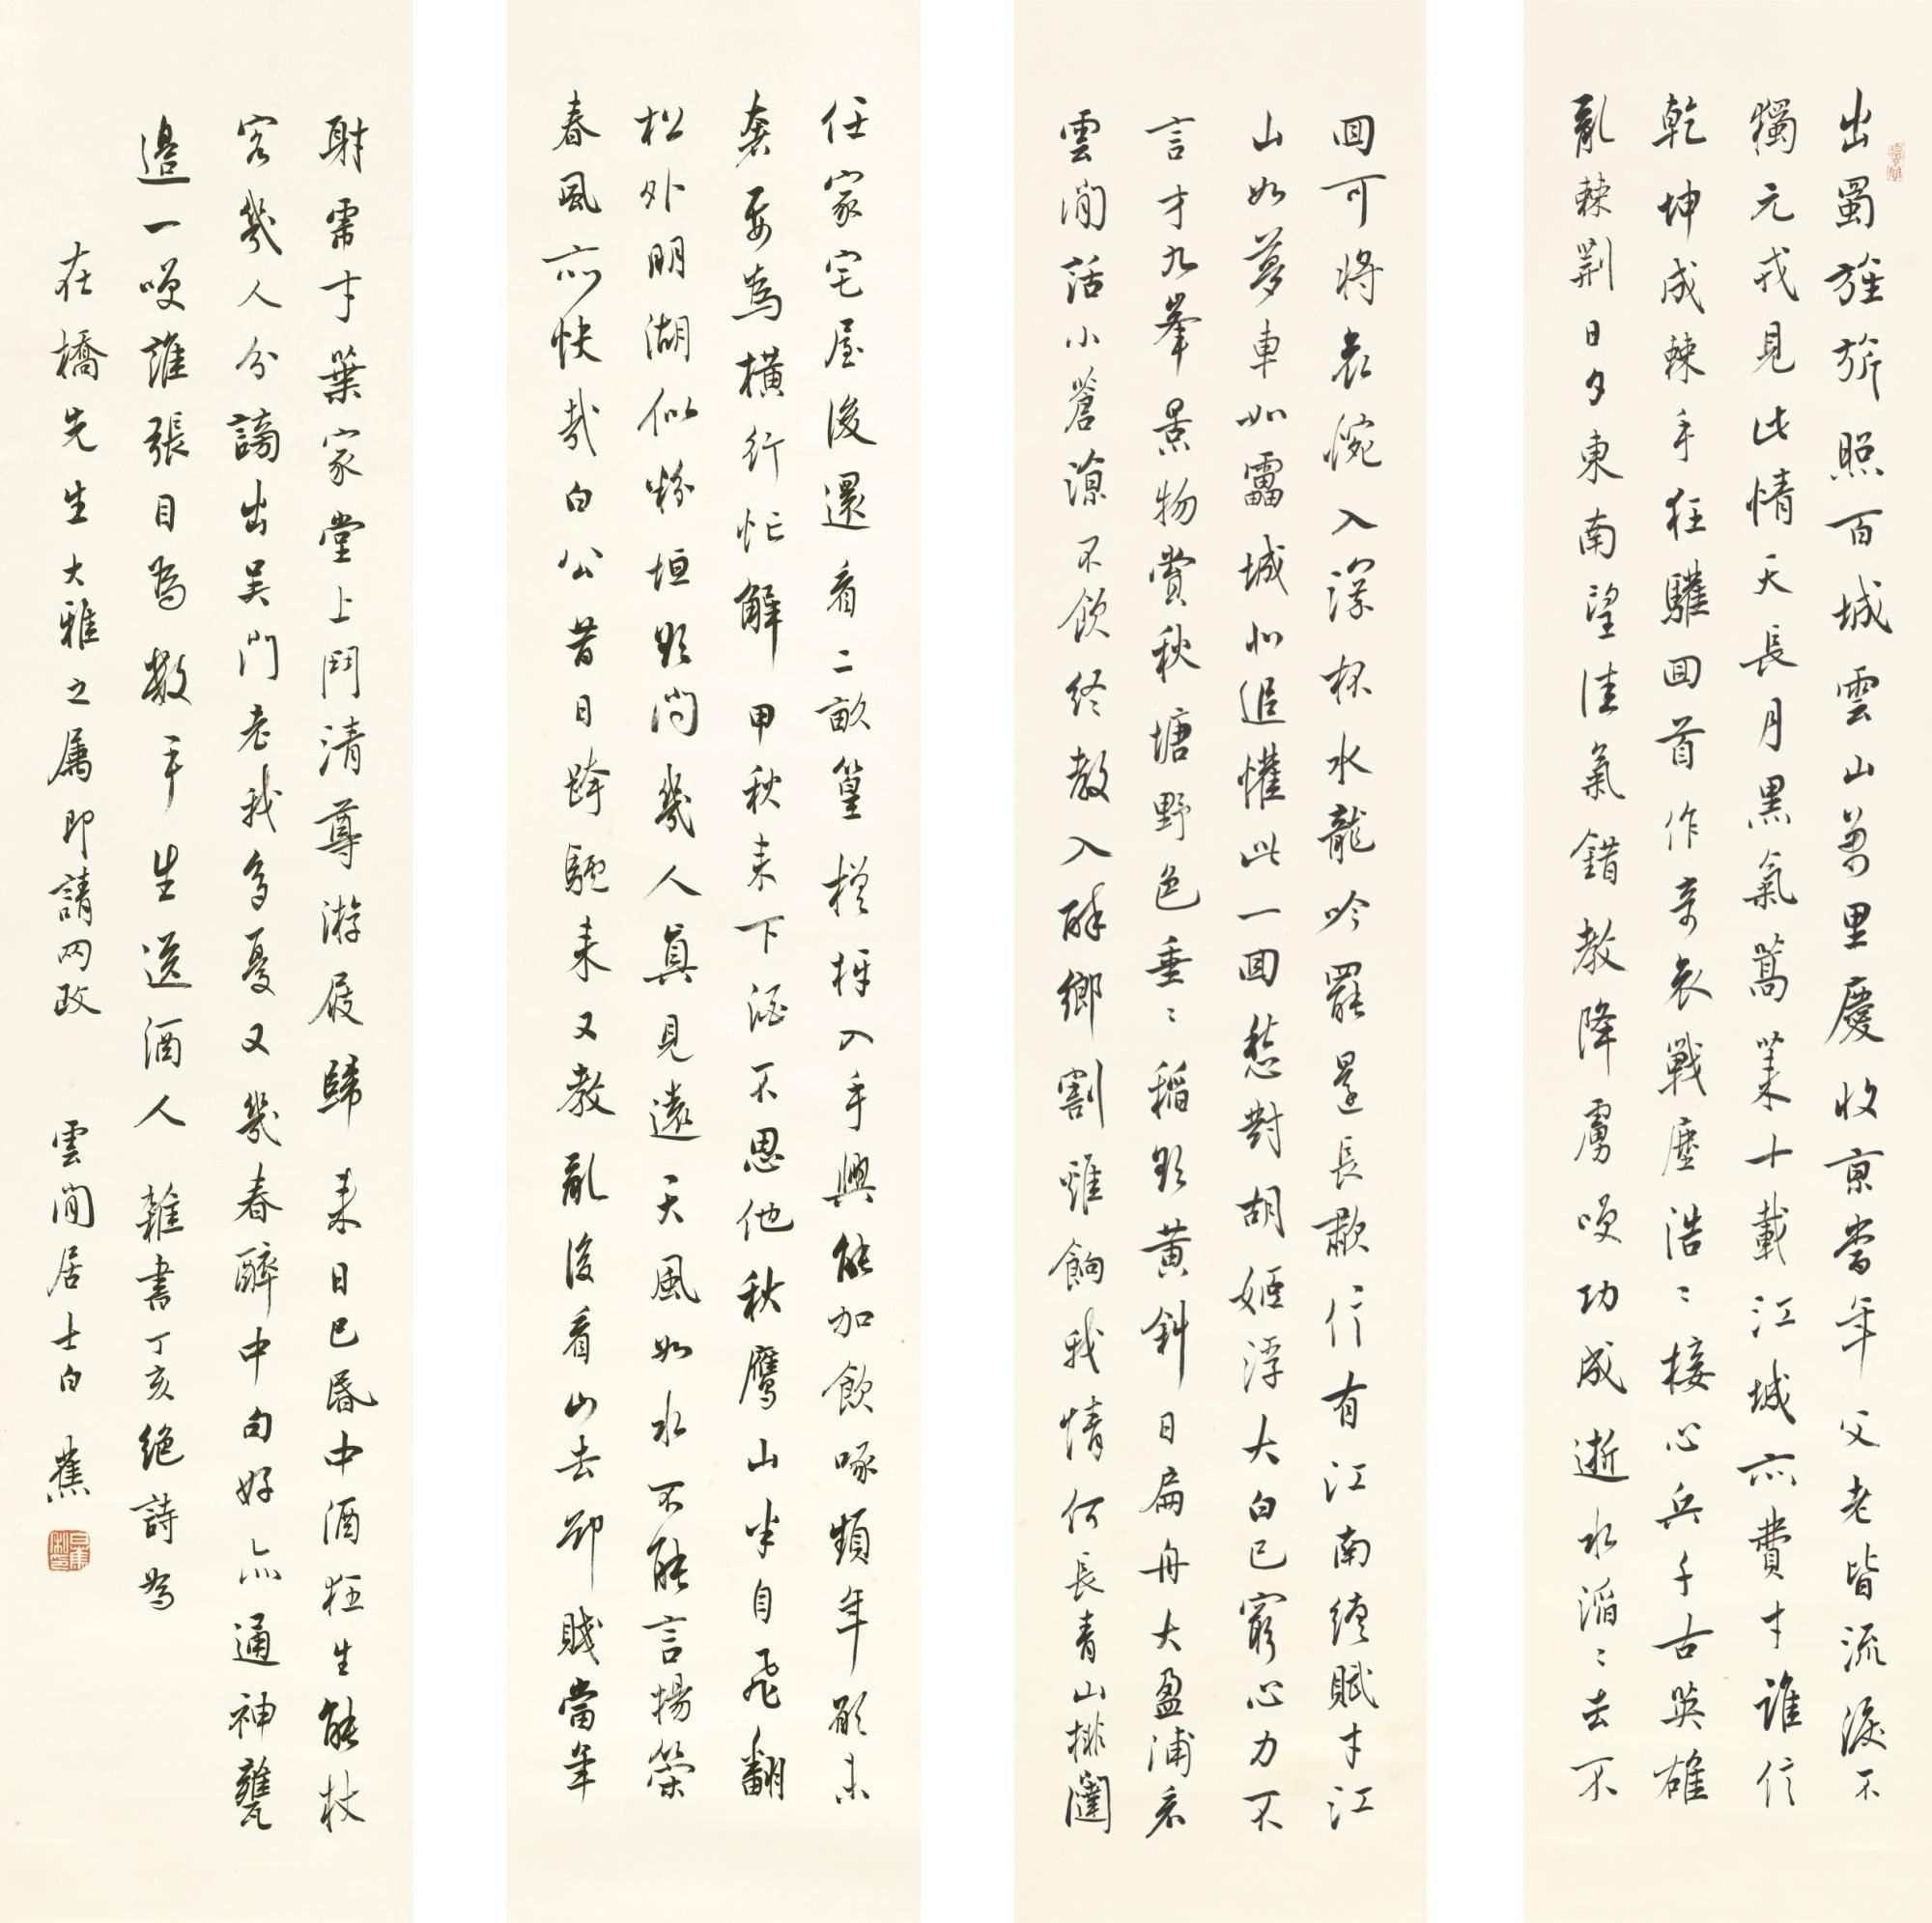 出蜀旌旂照百城雲山萬里慶收京當年父老皆流淚不
獨元戎見此情天長月黑氣蒿萊十載江城亦費才誰信
乾坤成棘手狂驪回首作奇哀戰塵浩〻接心兵千古英雄
亂棘荆日夕東南望佳氣錯教降虜嘆功成逝水滔〻去不
回可將哀惋入深杯水龍吟罷還長歗信有江南續賦才江
山如夢車如靁城北追懽此一回愁對胡姬浮大白已窮心力不
言才九峯景物賞秋塘野色垂〻稻欲黄斜日扁舟大盈浦看
雲閒話小蒼涼不飲終教入醉鄉割雞餉我情何長青山排闥
任家宅屋後還看二畝篁 入手興能加飲啄頻年顧未
奢要為橫行忙解甲秋來下酒不思他秋鷹山半自飛翻
松外明湖似粉垣欲問幾人真見遠天風如水不能言揚榮
春風亦快哉白公昔日跨驢來又教亂後看山去卻賤當年
射雷才葉家堂上鬥清尊游屐歸來日已昏中酒狂生能杖
客幾人分謗出吴門老我多憂又幾春醉中句好亦通神甕
邊一嘆誰張目為數平生送酒人 雜書丁亥絕詩為
在橋先生大雅之屬即請冈政 雲間居士白蕉